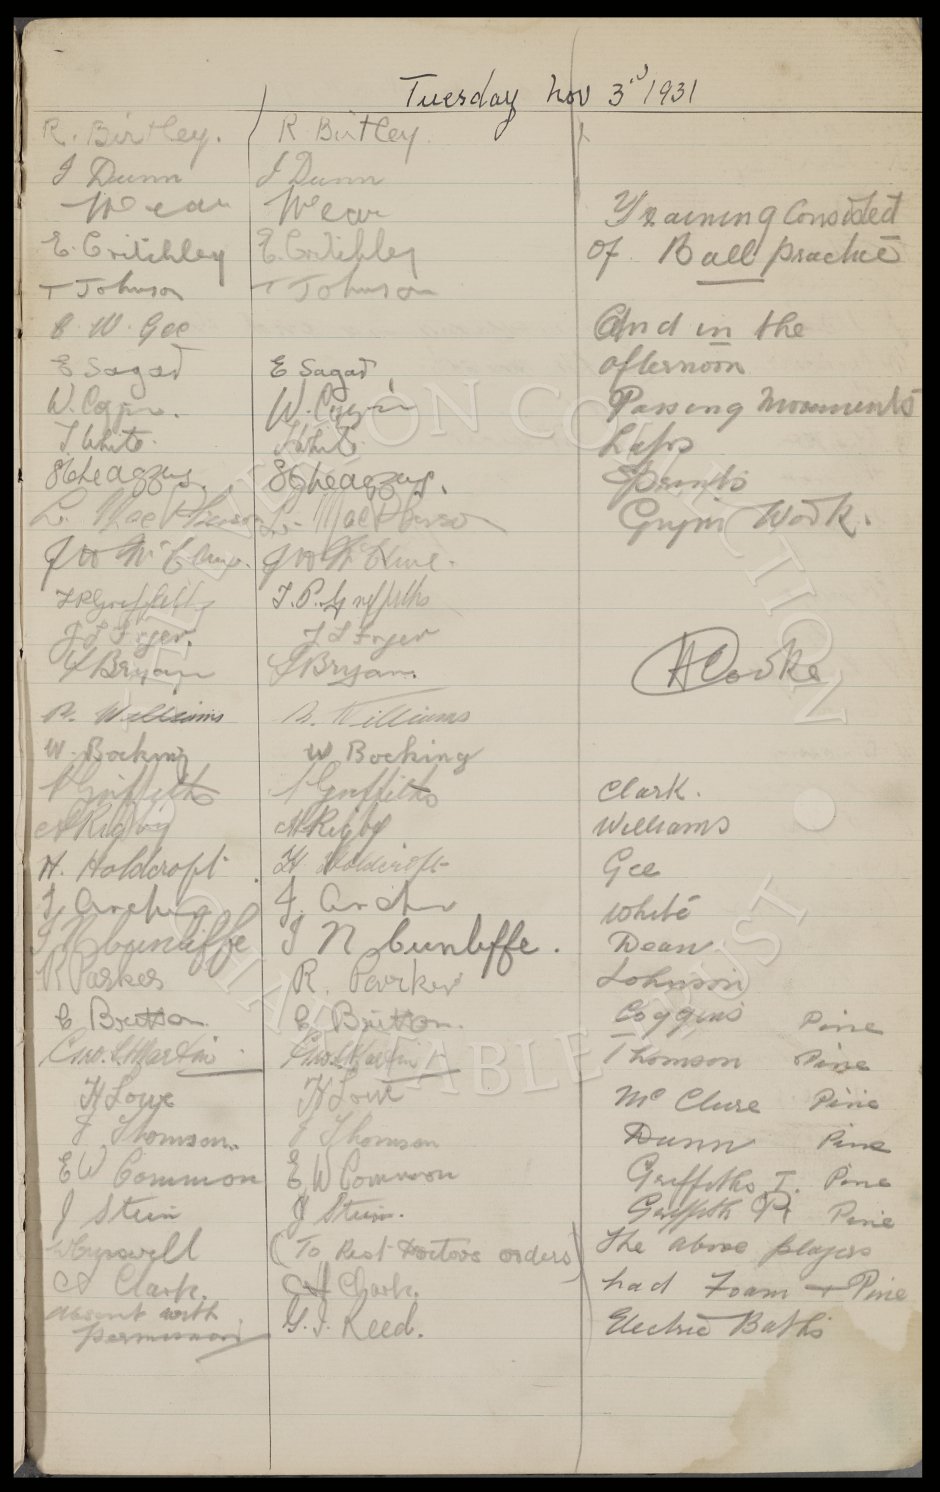 Tuesday Nov 3rd 1931
R. Birtley. R Birtley
J Dunn J Dunn
Wear Wear
E. Critchley E. Critchley
T Johnson T Johnson
C. W. Gee
E Sagar E Sagar
W. Coggins. W. Coggins
T White T White
L. MacPherson L. MacPherson
J W McClure. J W McClure.
T P Griffiths T. P. Griffiths
J L Fryer. J L Fryer
Bryan Bryan.
B. Williams B. Williams
W. Bocking W Bocking
P Griffiths P Griffiths
A Rigby A Rigby
H. Holdcroft. H Holdcroft
J. Archer J. Archer
J N Cunliffe J N Cunliffe.
R Parker R. Parker
C Britton. C Britton.
Geo. S. Martin Geo. S. Martin
H Lowe H Lowe
J Thomson. J Thomson
E W Common E W Common
J Stein J Stein.
W Cresswell (To Rest Doctors orders)
A Clark. A Clark.
absent with G. J. Reed.
permission
Training Consisted
of Ball practice
And in the
afternoon
Passing Movements
Laps
Sprints
Gym Work.
H Cooke
Clark.
Williams
Gee
White
Dean
Johnson
Coggins Pine
Thomson Pine
Mc Clure Pine
Dunn Pine
Griffiths T. Pine
Griffith P Pine
The above players
had Foam + Pine
Electric Baths
EVERTON COLLECTION
CHARITABLE TRUST